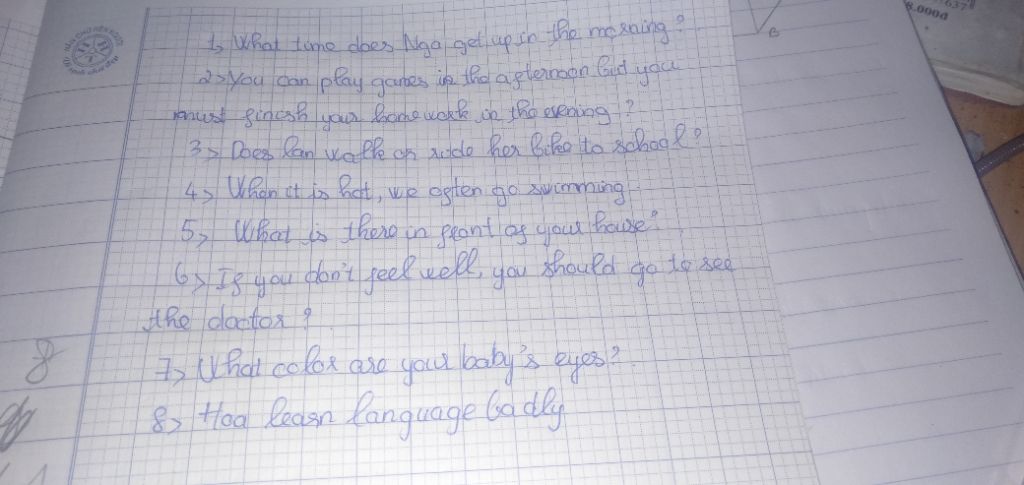 1, What time does Nga get up in the morning?
2> You can play games in the afternoon but you
must finish your homework in the evening ?
3> Does Lan walk or ride her bike to school?
4> When it is hot, we often go swimming
5> What is there in front of your house?
6> If you don't feel well, you should go to see
the doctor ?
7> What color are your baby's eyes?
8> Hoa learn language badly
8
B
8.0000
637